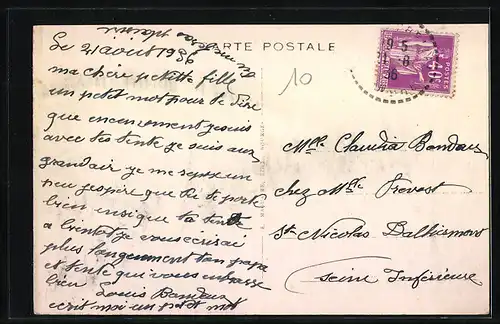 CARTE POSTALE
Le 21 août 1936
ma chère petitte fille
un petit mot pour te dire
que encenement je suis
avec tes tente je suis aux
grandair je me repose un
peu j'espère que tu te porte
bien insique ta tente
a bientot je vous écrirai
plus longuement ton papa
et tente qui vous embrasse
bien Louis
écrit moi un petit mot
10
POSTES
Mlle Claudia
chez Mlle Prevost
St Nicolas
Seine Inférieure